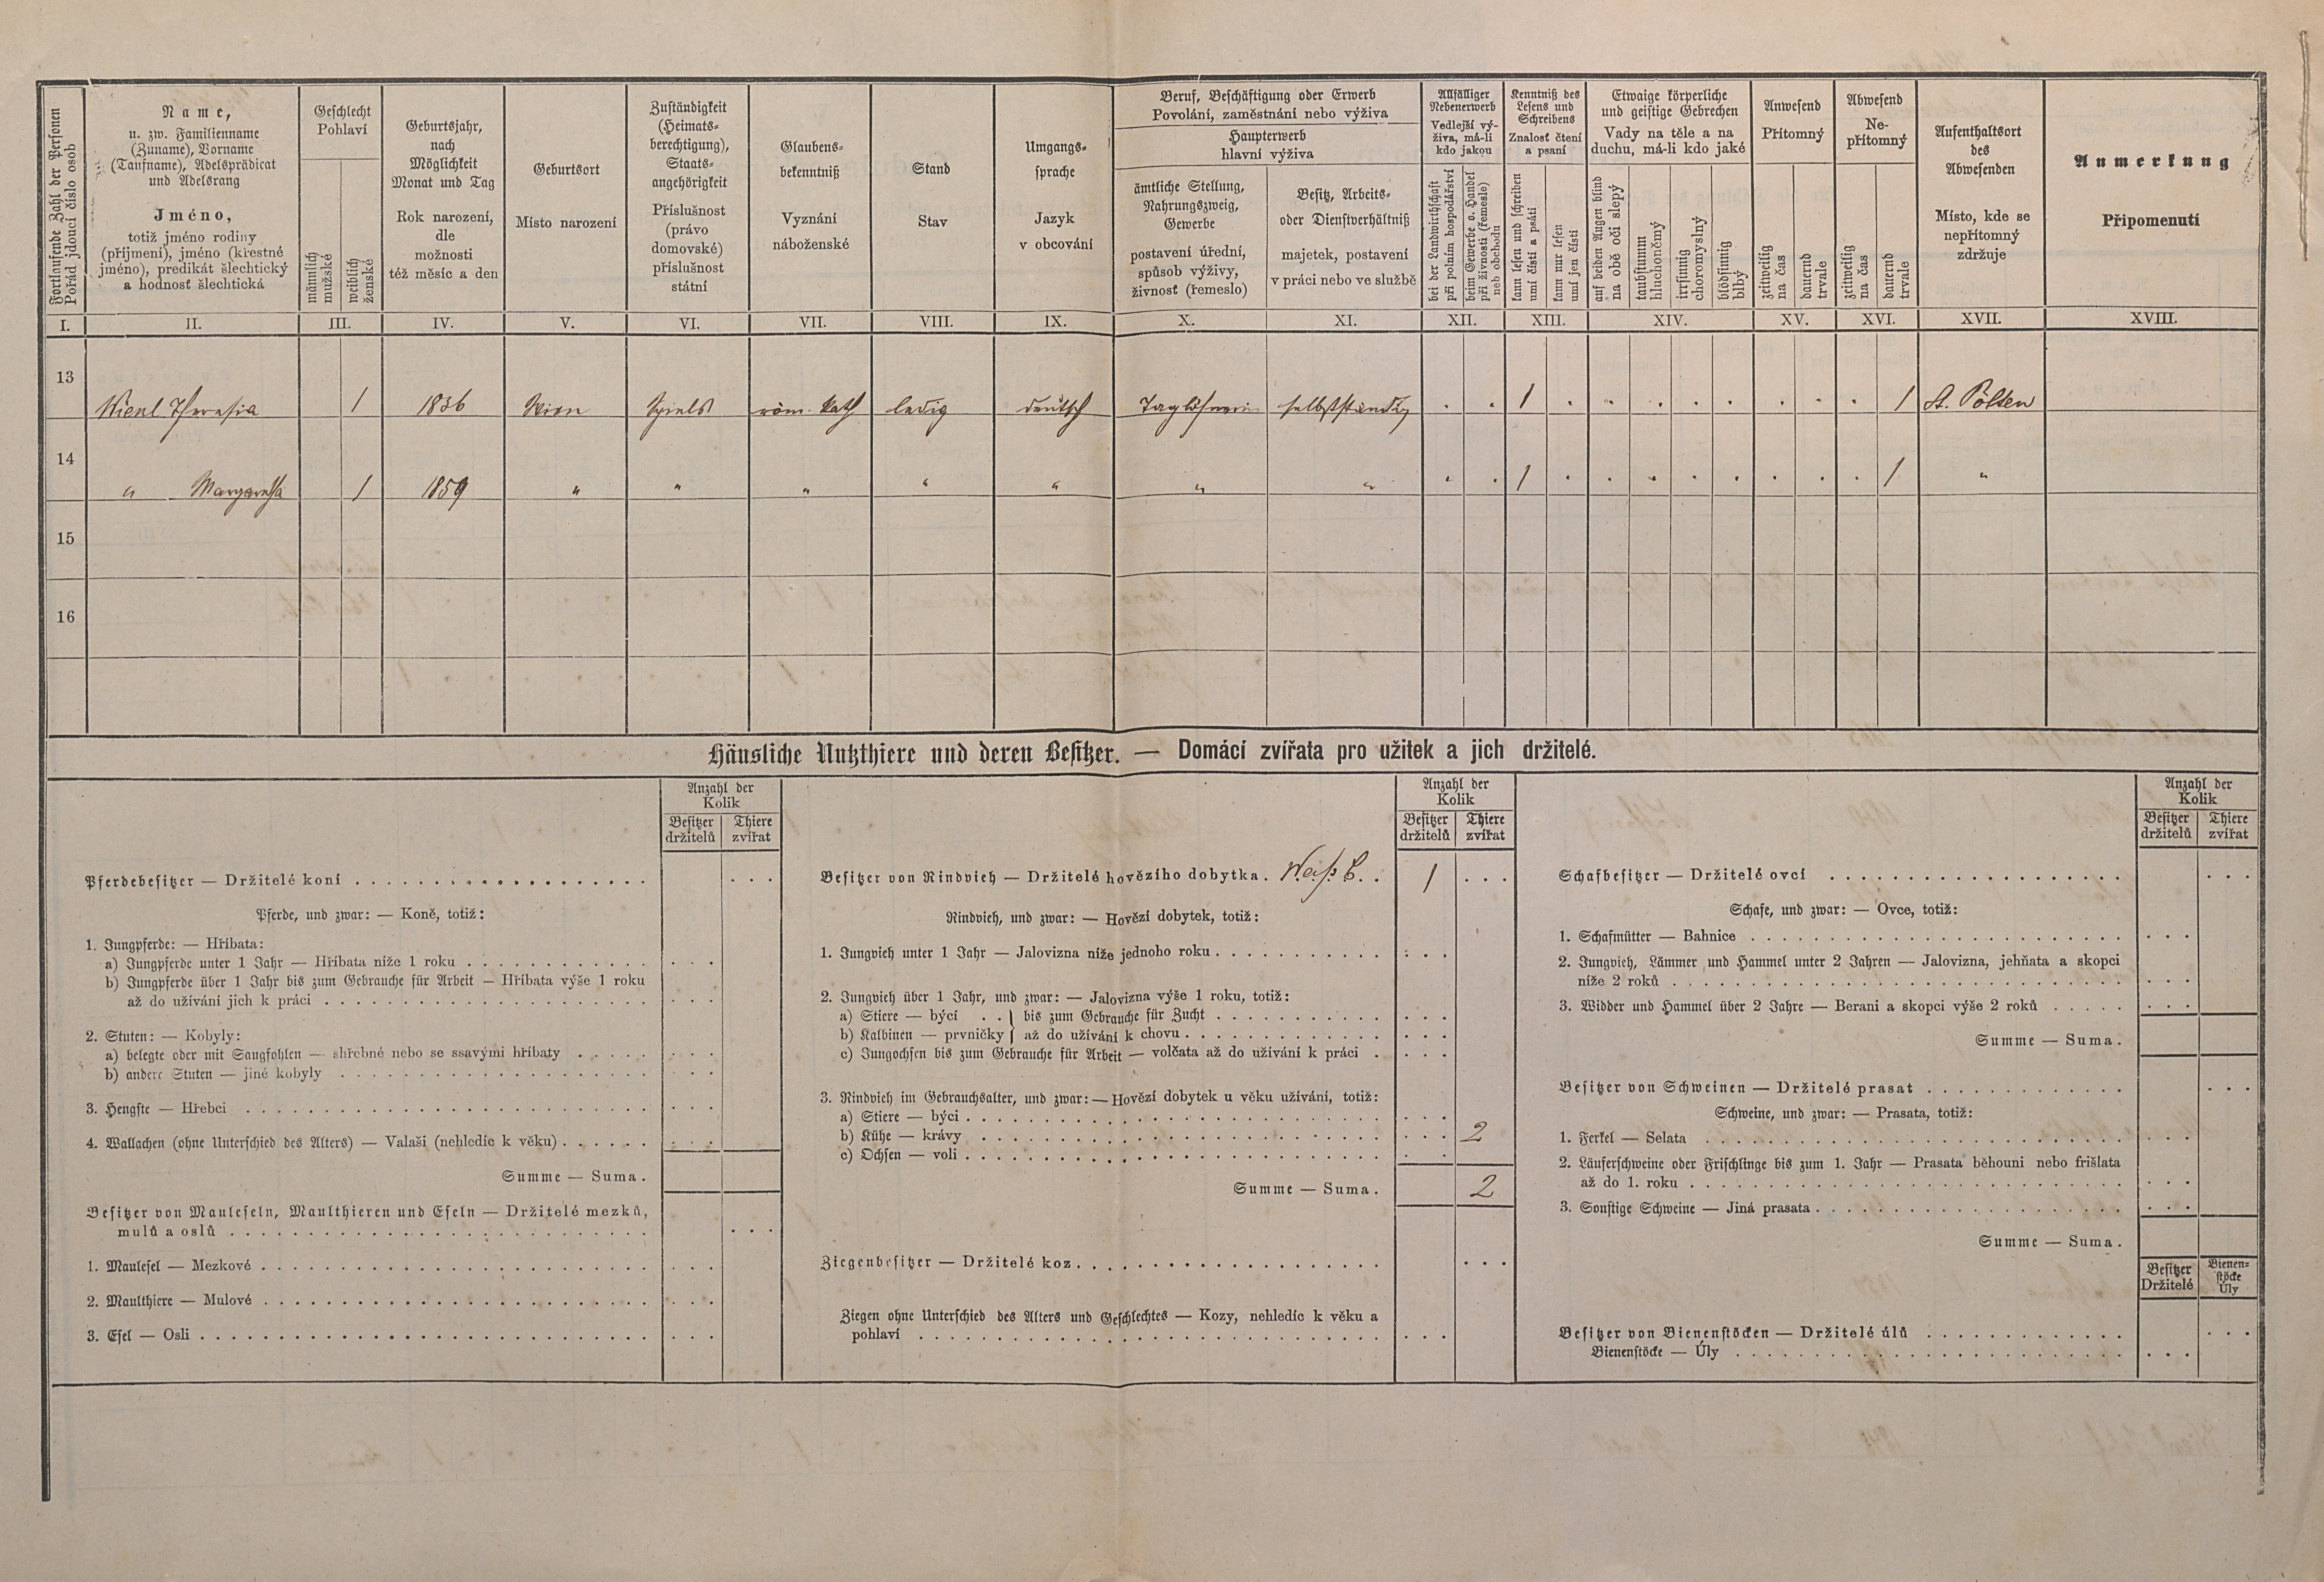 Fortlaufende Zahl der Personen
Pořád jdoucí číslo osob
Name,
u. zw. Familienname
(Zuname), Vorname
(Taufname), Adelsprädicat
und Adelsrang
Jméno,
totiž jméno rodiny
(příjmení), jméno (křestné
jméno), predikát šlechtický
a hodnosť šlechtická
Geschlecht
Pohlaví
männlich
mužské
weiblich
ženské
Geburtsjahr,
nach
Möglichkeit
Monat und Tag
Rok narození,
dle
možnosti
též měsíc a den
Geburtsort
Místo narození
Zuständigkeit
(Heimats-
berechtigung),
Staats-
angehörigkeit
Příslušnost
(právo
domovské)
příslušnost
státní
Glaubens-
bekenntniß
Vyznání
náboženské
Stand
Stav
Umgangs-
sprache
Jazyk
v obcování
Beruf, Beschäftigung oder Erwerb
Povolání, zaměstnání nebo výživa
Haupterwerb
hlavní výživa
ämtliche Stellung,
Nahrungszweig,
Gewerbe
postavení úřední,
spůsob výživy,
živnosť (řemeslo)
Besitz, Arbeits-
oder Dienstverhältniß
majetek, postavení
v práci nebo ve službě
Allfälliger
Nebenerwerb
Vedlejší vý-
živa, má-li
kdo jakou
bei der Landwirthschaft
při polním hospodářství
beim Gewerbe o. Handel
při živnosti (řemesle)
neb obchodu
Kenntniß des
Lesens und
Schreibens
Znalosť čtení
a psaní
kann lesen und schreiben
umí čísti a psáti
kann nur lesen
umí jen čísti
Etwaige körperliche
und geistige Gebrechen
Vady na těle a na
duchu, má-li kdo jaké
auf beiden Augen blind
na obě oči slepý
taubstumm
hluchoněmý
irrsinnig
choromyslný
blödsinnig
blbý
Anwesend
Přítomný
zeitweilig
na čas
dauernd
trvale
Abwesend
Ne-
přítomný
zeitweilig
na čas
dauernd
trvale
Aufenthaltsort
des
Abwesenden
Místo, kde se
nepřítomný
zdržuje
Anmerkung
Připomenutí
I. II. III. IV. V. VI. VII. VIII. IX. X. XI. XII. XIII. XIV. XV. XVI. XVII. XVIII.
13 Theresia 1 1836 Wien röm. Kath ledig deutsch Taglöhnerin selbstständig . . 1 . . . . . . . . 1 St. Pölten
14 " Margaretha 1 1859 " " " " " " " . . 1 . . . . . . . . 1 "
15
16
Häusliche Nutzthiere und deren Besitzer. — Domácí zvířata pro užitek a jich držitelé.
Anzahl der
Kolik
Besitzer
držitelů
Thiere
zvířat
Pferdebesitzer — Držitelé koní
Pferde, und zwar: — Koně, totiž:
1. Jungpferde: — Hříbata:
a) Jungpferde unter 1 Jahr — Hříbata níže 1 roku
b) Jungpferde über 1 Jahr bis zum Gebrauche für Arbeit — Hříbata výše 1 roku
až do užívání jich k práci
2. Stuten: — Kobyly:
a) belegte oder mit Saugfohlen — shřebné nebo se ssavými hříbaty
b) andere Stuten — jiné kobyly
3. Hengste — Hřebci
4. Wallachen (ohne Unterschied des Alters) — Valaši (nehledíc k věku)
Summe — Suma.
Besitzer von Mauleseln, Maulthieren und Eseln — Držitelé mezků,
mulů a oslů
1. Maulesel — Mezkové
2. Maulthiere — Mulové
3. Esel — Osli
Anzahl der
Kolik
Besitzer
držitelů
Thiere
zvířat
Besitzer von Rindvieh — Držitelé hovězího dobytka. 1
Rindvieh, und zwar: — Hovězí dobytek, totiž:
1. Jungvieh unter 1 Jahr — Jalovizna níže jednoho roku
2. Jungvieh über 1 Jahr, und zwar: — Jalovizna výše 1 roku, totiž:
a) Stiere — býci . . } bis zum Gebrauche für Zucht
b) Kalbinen — prvničky } až do užívání k chovu
c) Jungochsen bis zum Gebrauche für Arbeit — volčata až do užívání k práci
3. Rindvieh im Gebrauchsalter, und zwar: — Hovězí dobytek u věku užívání, totiž:
a) Stiere — býci
b) Kühe — krávy 2
c) Ochsen — voli
Summe — Suma. 2
Ziegenbesitzer — Držitelé koz
Ziegen ohne Unterschied des Alters und Geschlechtes — Kozy, nehledíc k věku a
pohlaví
Anzahl der
Kolik
Besitzer
držitelů
Thiere
zvířat
Schafbesitzer — Držitelé ovcí
Schafe, und zwar: — Ovce, totiž:
1. Schafmütter — Bahnice
2. Jungvieh, Lämmer und Hammel unter 2 Jahren — Jalovizna, jehňata a skopci
níže 2 roků
3. Widder und Hammel über 2 Jahre — Berani a skopci výše 2 roků
Summe — Suma.
Besitzer von Schweinen — Držitelé prasat
Schweine, und zwar: — Prasata, totiž:
1. Ferkel — Selata
2. Läuferschweine oder Frischlinge bis zum 1. Jahr — Prasata běhouni nebo frišlata
až do 1. roku
3. Sonstige Schweine — Jiná prasata
Summe — Suma.
Besitzer
Držitelé
Bienen-
stöcke
Úly
Besitzer von Bienenstöcken — Držitelé úlů
Bienenstöcke — Úly